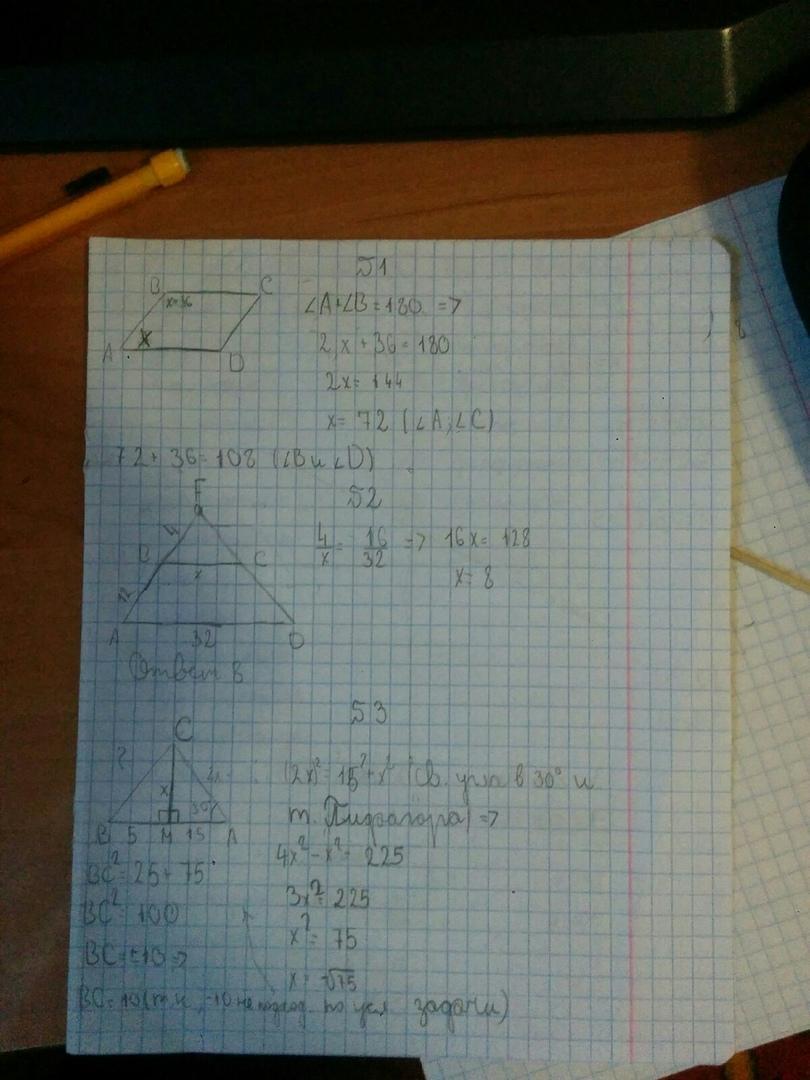 Б1
B C
x+36
x
A D
∠A+∠B=180 =>
2x+36=180
2x=144
x=72 (∠A;∠C)
72+36=108 (∠B и ∠D)
Б2
F
4
B C
x
12
A D
32
4/x = 16/32 => 16x=128
x=8
Ответ 8
Б3
C
?
2x
x
30°
B 5 M 15 A
(2x)²=15²+x² (Св. угла в 30° и
т. Пифагора) =>
4x²-x²=225
3x²=225
x²=75
x=√75
BC²=25+75
BC²=100
BC=±10 =>
BC=10 (т.к. -10 не подход. по усл задачи)